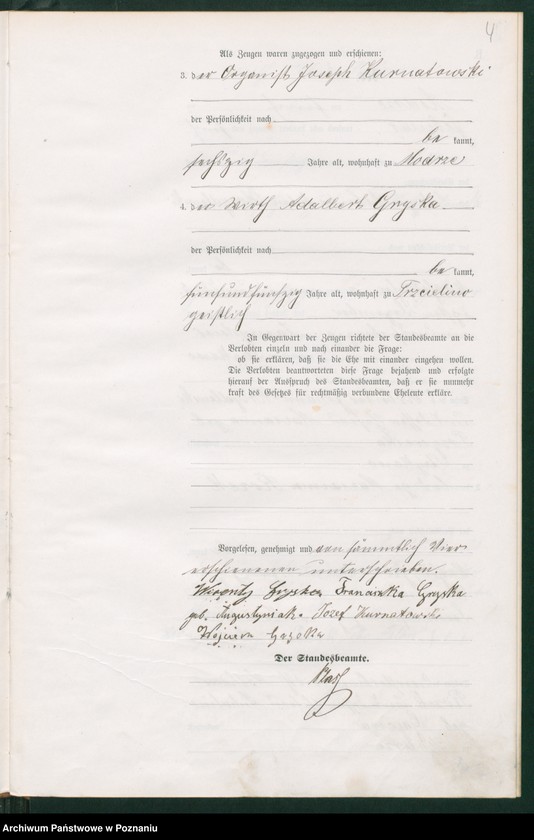 4
Als Zeugen waren zugezogen und erschienen:
3. der Organist Joseph Kurnatowski
der Persönlichkeit nach
be kannt,
sechszig Jahre alt, wohnhaft zu Modrze
4. der Wirth Adalbert Gryska
der Persönlichkeit nach
be kannt,
fünfundfünfzig Jahre alt, wohnhaft zu Trzcielino
geistlich
In Gegenwart der Zeugen richtete der Standesbeamte an die
Verlobten einzeln und nach einander die Frage:
ob sie erklären, daß sie die Ehe mit einander eingehen wollen.
Die Verlobten beantworteten diese Frage bejahend und erfolgte
hierauf der Ausspruch des Standesbeamten, daß er sie nunmehr
kraft des Gesetzes für rechtmäßig verbundene Eheleute erkläre.
Vorgelesen, genehmigt und von sämmtlich Vier
erschienenen unterschrieben.
Gryska Franciszka Gryska
geb. Augustyniak. Jozef Kurnatowski
Wojciech Gryska
Der Standesbeamte.
Archiwum Państwowe w Poznaniu